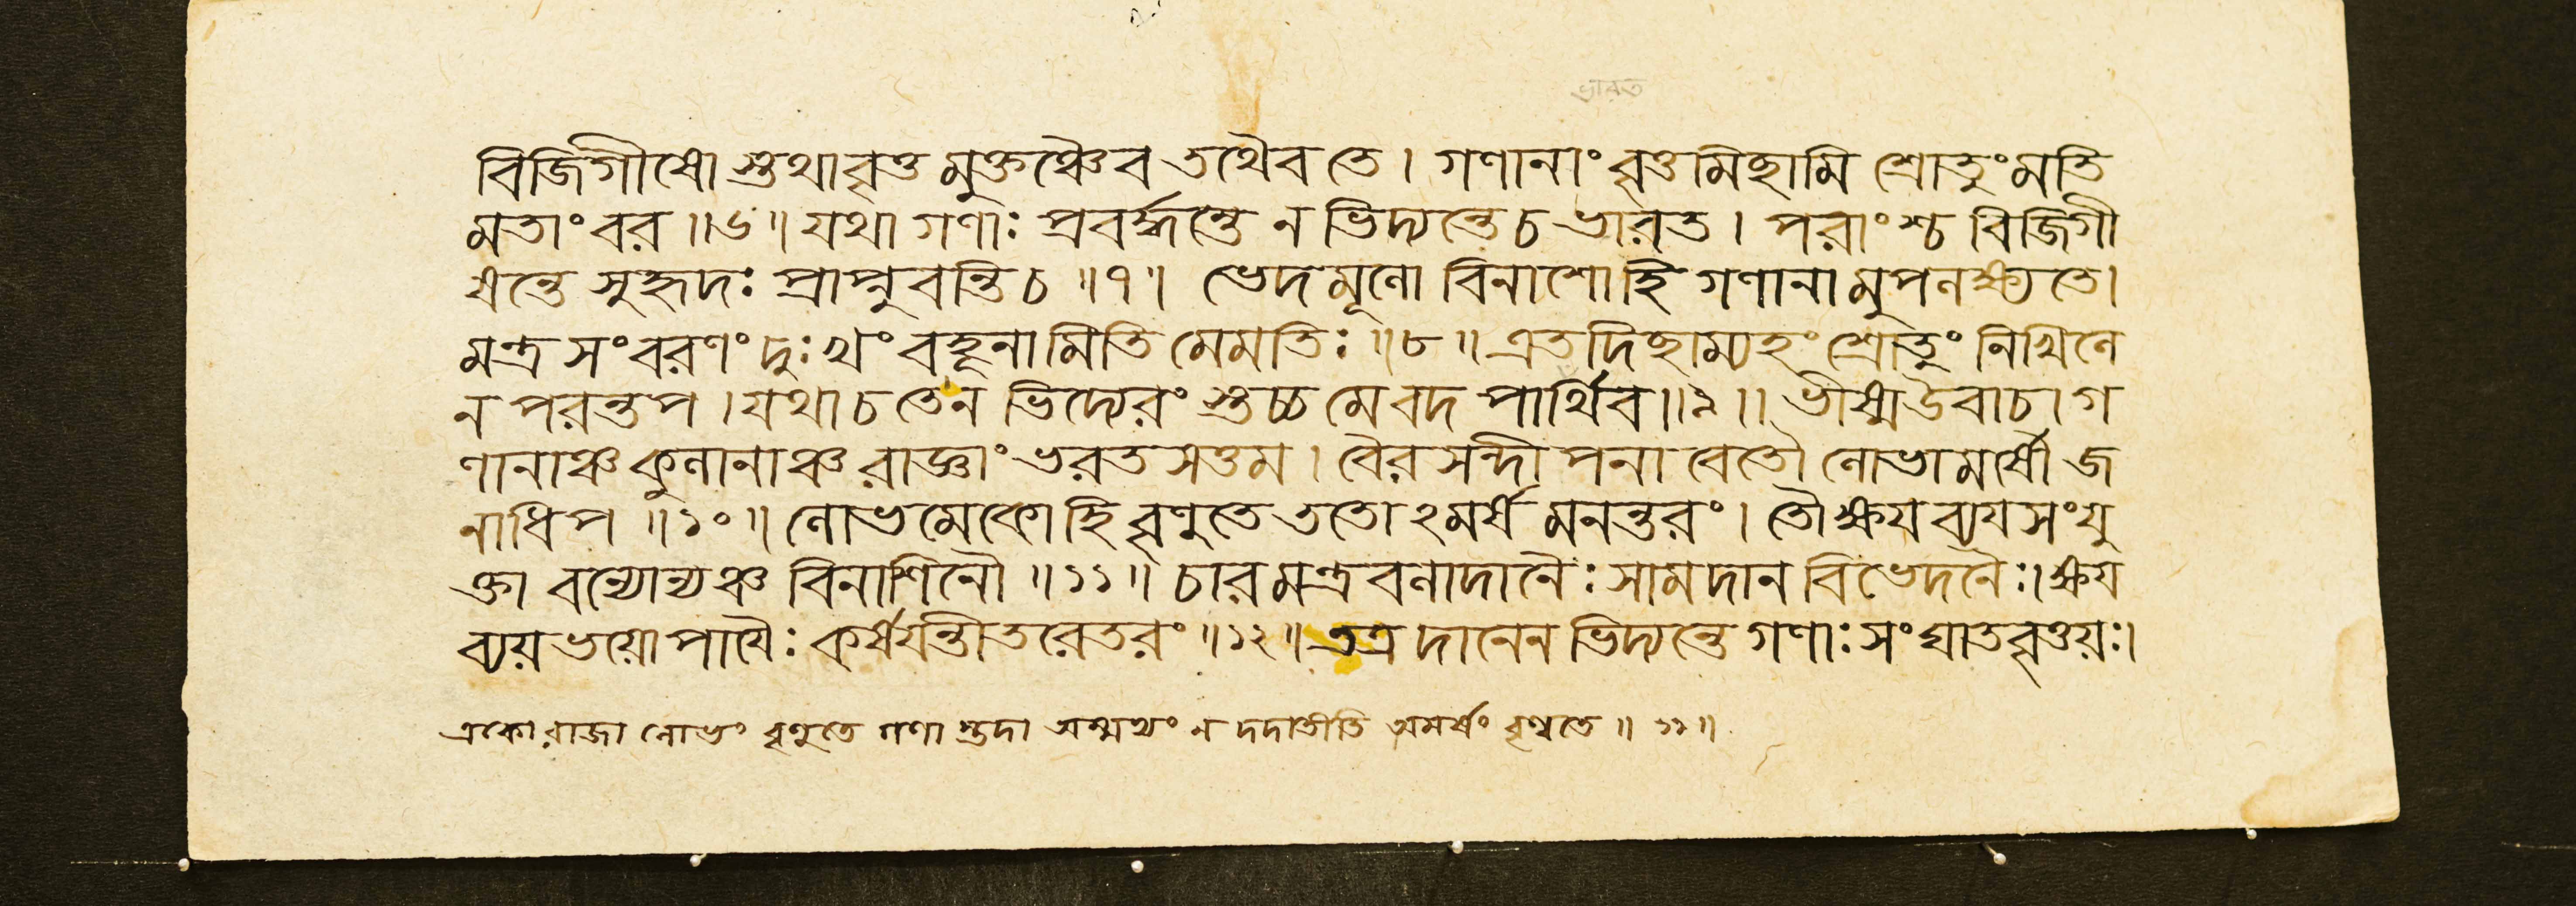 ভারত
বিজিগীষো স্তথাবৃত্ত মুক্তঞ্চৈব তথৈব তে। গণানাং বৃত্তমিছামি শ্রোতুং মতি
মতাং বর ॥৬॥ যথা গণাঃ প্রবর্দ্ধন্তে ন ভিদ্যন্তে চ ভারত। পরাংশ্চ বিজিগী
ষন্তে সুহৃদঃ প্রাপ্নুবন্তি চ ॥৭॥ ভেদমূলো বিনাশো হি গণানামুপলক্ষ্যতে।
মন্ত্র সংবরণং দুঃখং বহূনামিতি মেমতিঃ ॥৮॥ এতদিছাম্যহং শ্রোতুং নিখিলে
ন পরন্তপ। যথা চ তেন ভিদ্যেরং স্তচ্চ মে বদ পার্থিব॥৯॥ ভীষ্মউবাচ। গ
ণানাঞ্চ কুলানাঞ্চ রাজ্ঞাং ভরত সত্তম। বৈর সন্দীপনা বেতৌ লোভামর্ষৌ জ
নাধিপ ॥১০॥ লোভমেকো হি বৃণুতে ততো ঽমর্ষ মনন্তরং। তৌ ক্ষয ব্যয সংযু
ক্তা বন্যোন্যঞ্চ বিনাশিনৌ ॥১১॥ চার মন্ত্র বলাদানৈঃ সামদান বিভেদনৈঃ। ক্ষয
ব্যয় ভয়োপাযৈঃ কর্ষযন্তীতরেতরং ॥১২॥ তত্র দানেন ভিদ্যন্তে গণাঃ সংঘাতবৃত্তয়ঃ।
একো রাজা লোভং বৃণুতে গণা স্তদা অস্মভ্যং ন দদাতীতি অমর্ষং বৃণ্বতে ॥ ১১॥